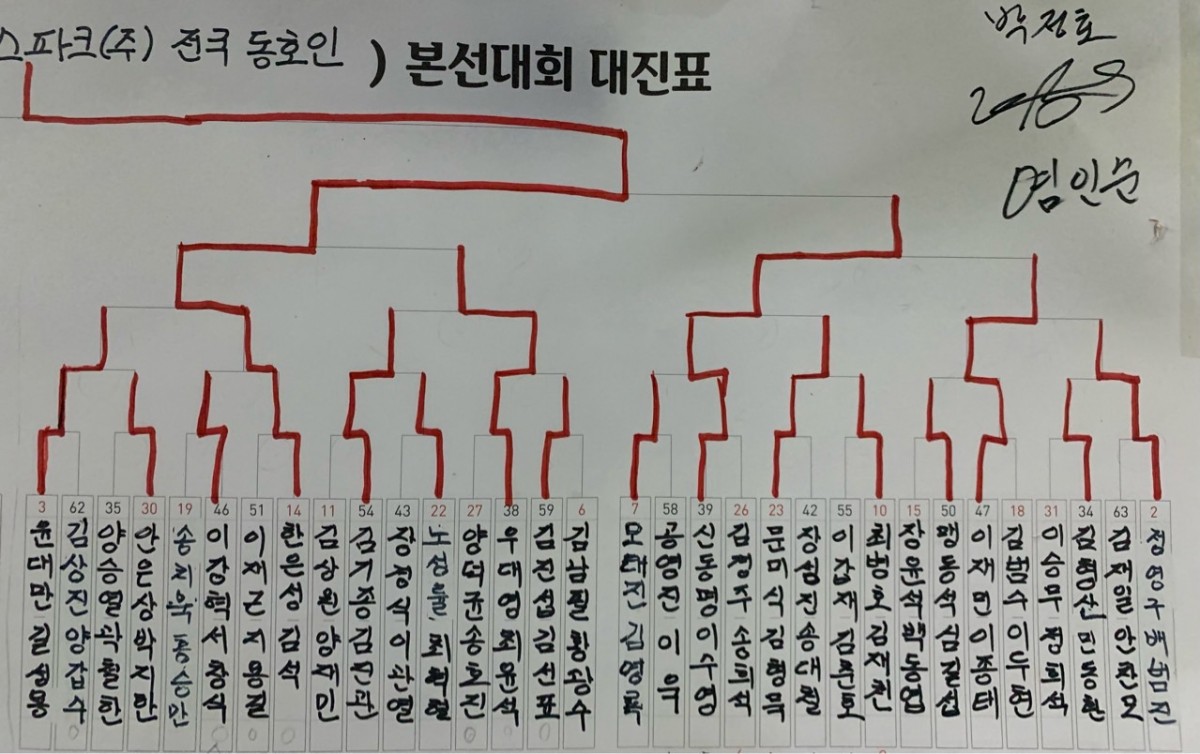 스파크(주) 전국 동호인 ) 본선대회 대진표
박정호
염인문
3 62 35 30 19 46 51 14 11 54 43 22 27 38 59 6 7 58 39 26 23 42 55 10 15 50 47 18 31 34 63 2
윤대만 길성용
김상진 양갑수
양승열 곽훨한
안은상 박지만
이강혁 서창석
이재근 지용걸
한은성 김석
김상원 양재민
김기종 김진관
장정식 이관열
양덕균 송호진
우대영 최윤석
김진섭 김선표
김남필 황광수
모태진 김영록
공영진 이욱
신동명 이수영
김정주 송희석
문미식 김형묵
장성진 송대월
최병호 김재진
장윤석 백동엽
맹동석 심길섭
이재민 이종태
김범수 이두현
이승무 정희석
김형산 민동환
김재일 안찬모
정영구 배범진